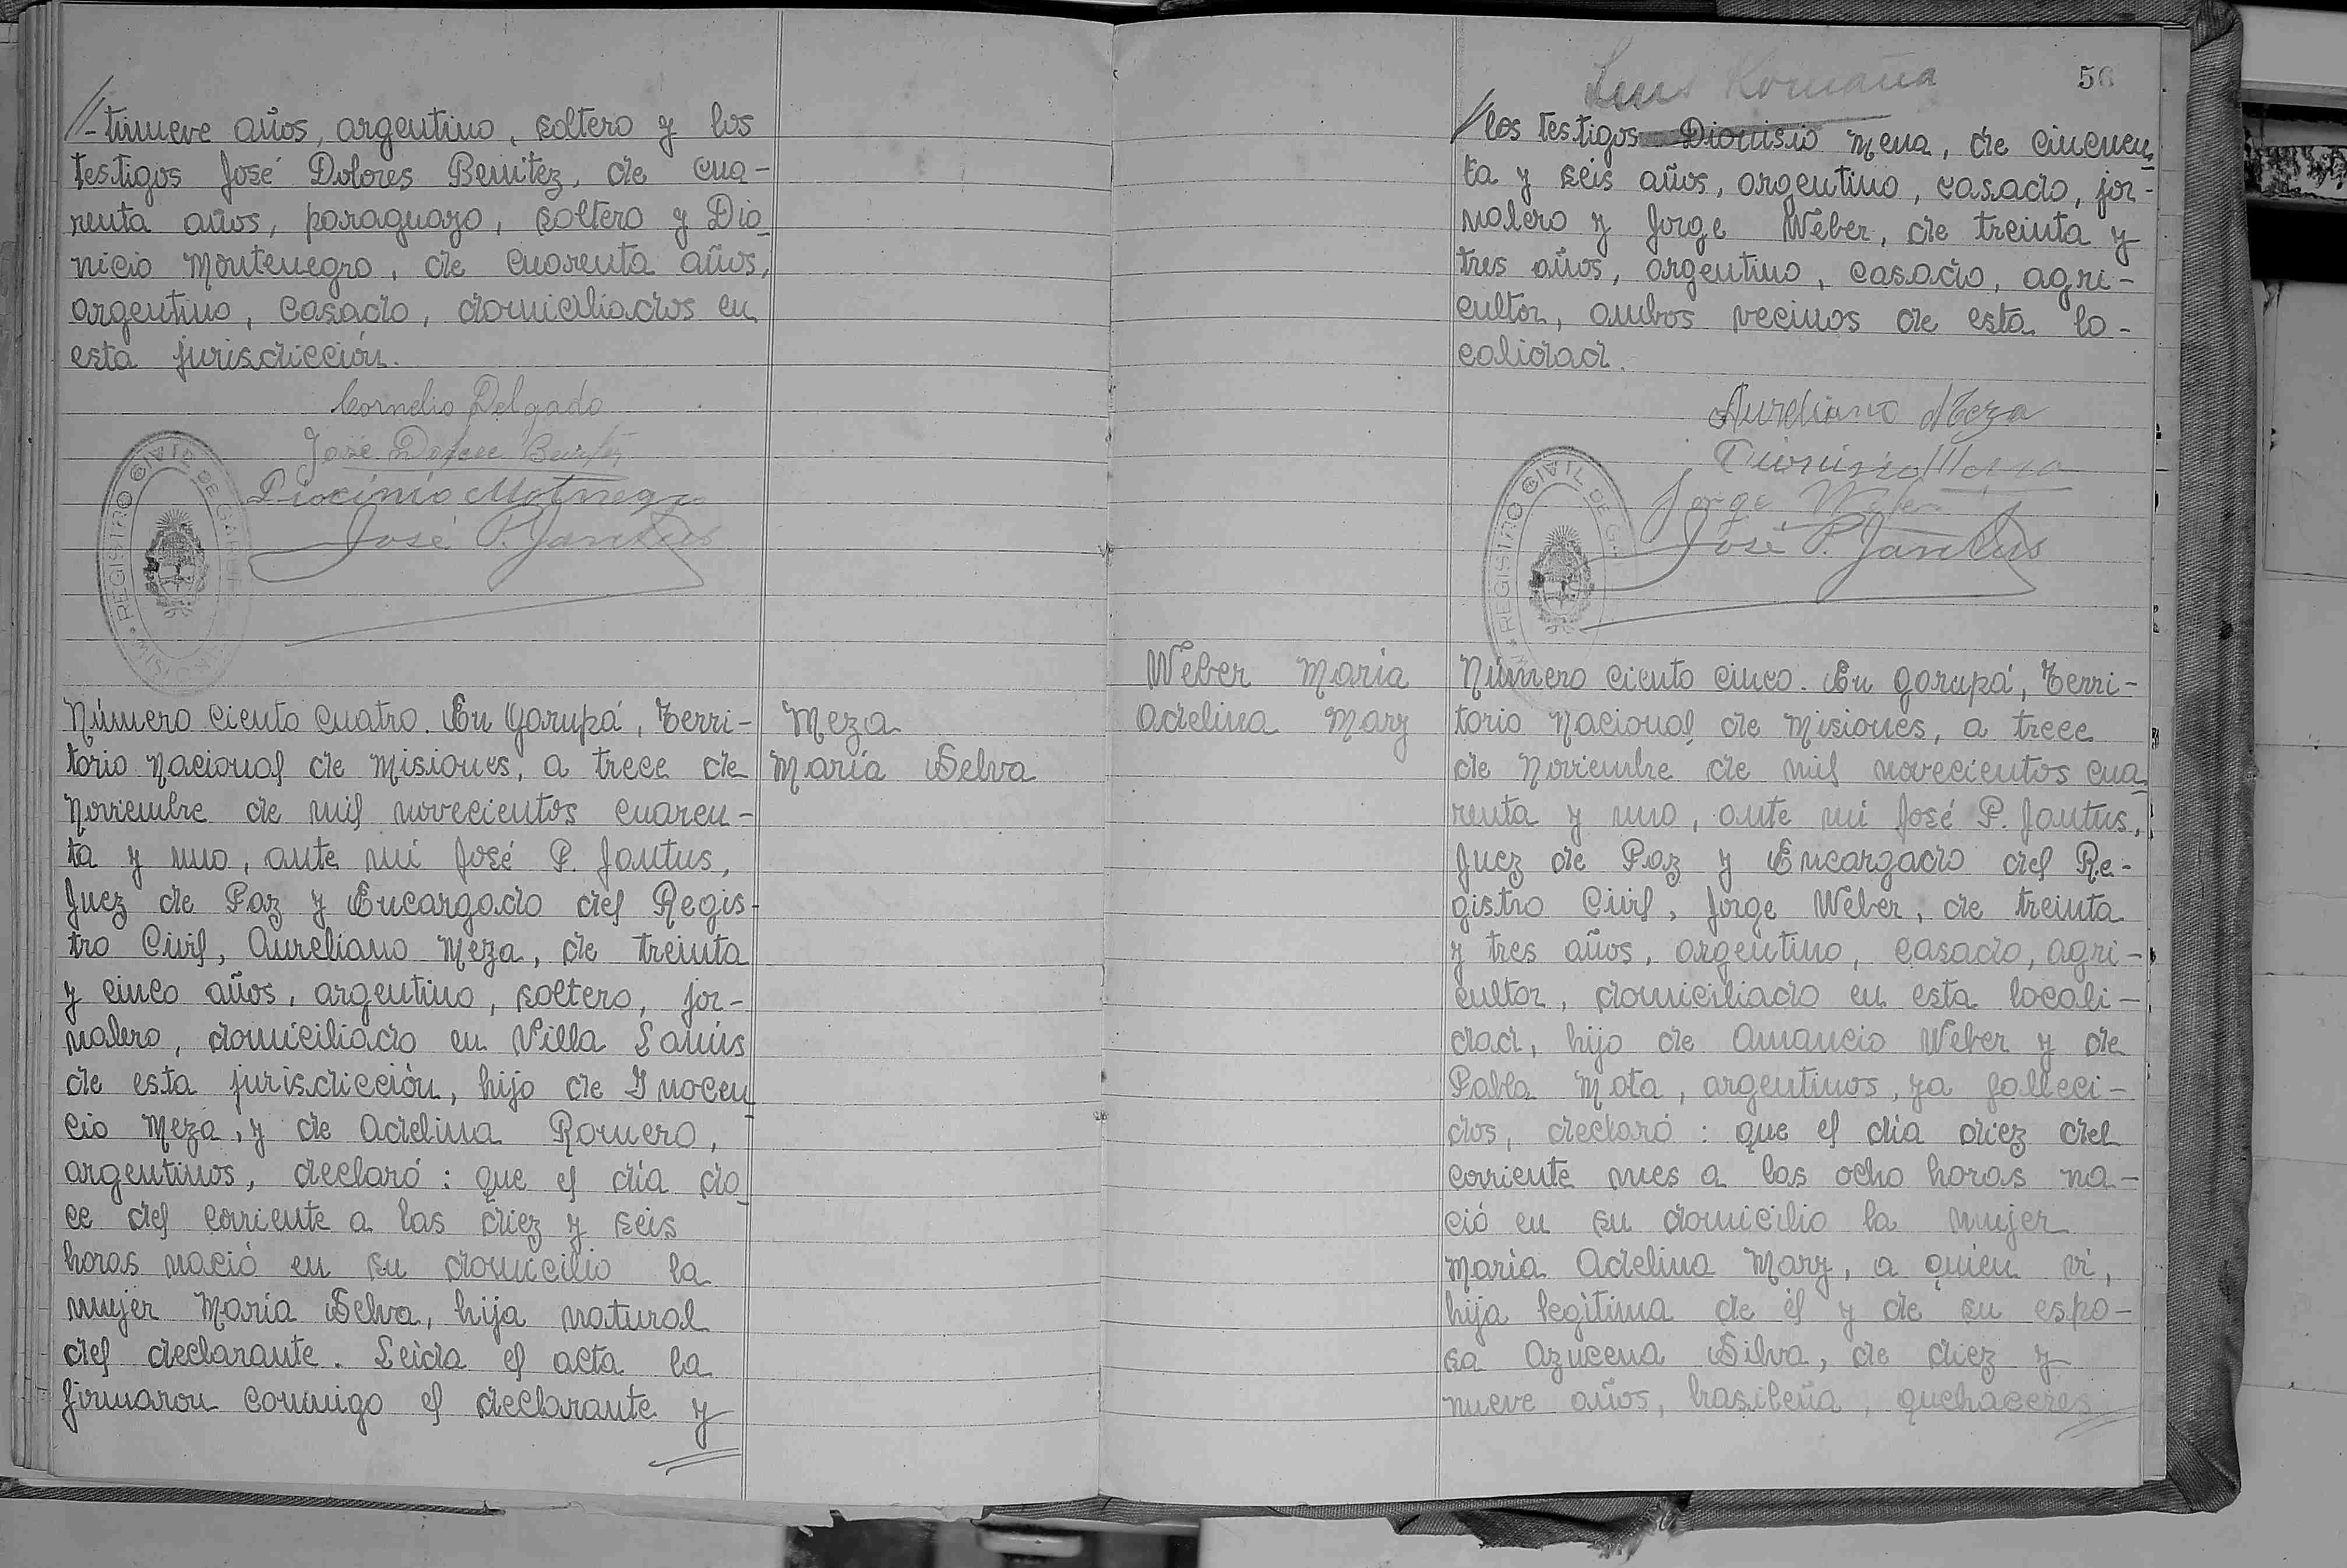 //-tinueve años, argentino, soltero y los
testigos José Dolores Benítez, de cua-
renta años, paraguayo, soltero y Dio-
nicio Montenegro, de cuarenta años,
argentino, casado, domiciliados en
esta jurisdicción.
Cornelio Delgado
José Dolores Benitez
José P. Jantus
REGISTRO CIVIL DE GARUPÁ
Número ciento cuatro. En Garupá, Terri-
torio Nacional de Misiones, a trece de
Noviembre de mil novecientos cuaren-
ta y uno, ante mí José P. Jantus,
Juez de Paz y Encargado del Regis-
tro Civil, Aureliano Meza, de treinta
y cinco años, argentino, soltero, jor-
nalero, domiciliado en Villa Lanús
de esta jurisdicción, hijo de Inocen-
cio Meza, y de Adelina Romero,
argentinos, declaró: que el día do-
ce del corriente a las diez y seis
horas nació en su domicilio la
mujer María Selva, hija natural
del declarante. Leída el acta la
firmaron conmigo el declarante y
Meza
María Selva
Luis Romaña
56
//los testigos Dionisio Mena, de cincuen-
ta y séis años, argentino, casado, jor-
nalero y Jorge Weber, de treinta y
tres años, argentino, casado, agri-
cultor, ambos vecinos de esta lo-
calidad.
Aureliano Meza
Dionisio Mena
Jorge Weber
José P. Jantus
REGISTRO CIVIL DE G
Weber María
Adelina Mary
Número ciento cinco. En Garupá, Terri-
torio Nacional de Misiones, a trece
de Noviembre de mil novecientos cua-
renta y uno, ante mi José P. Jantus,
Juez de Paz y Encargado del Re-
gistro Civil, Jorge Weber, de treinta
y tres años, argentino, casado, agri-
cultor, domiciliado en esta locali-
dad, hijo de Amancio Weber y de
Pabla Mota, argentinos, ya falleci-
dos, declaró: que el día diez del
corriente mes a las ocho horas na-
ció en su domicilio la mujer
María Adelina Mary, a quien vi,
hija legítima de él y de su espo-
sa Azucena Silva, de diez y
nueve años, brasileña, quehaceres